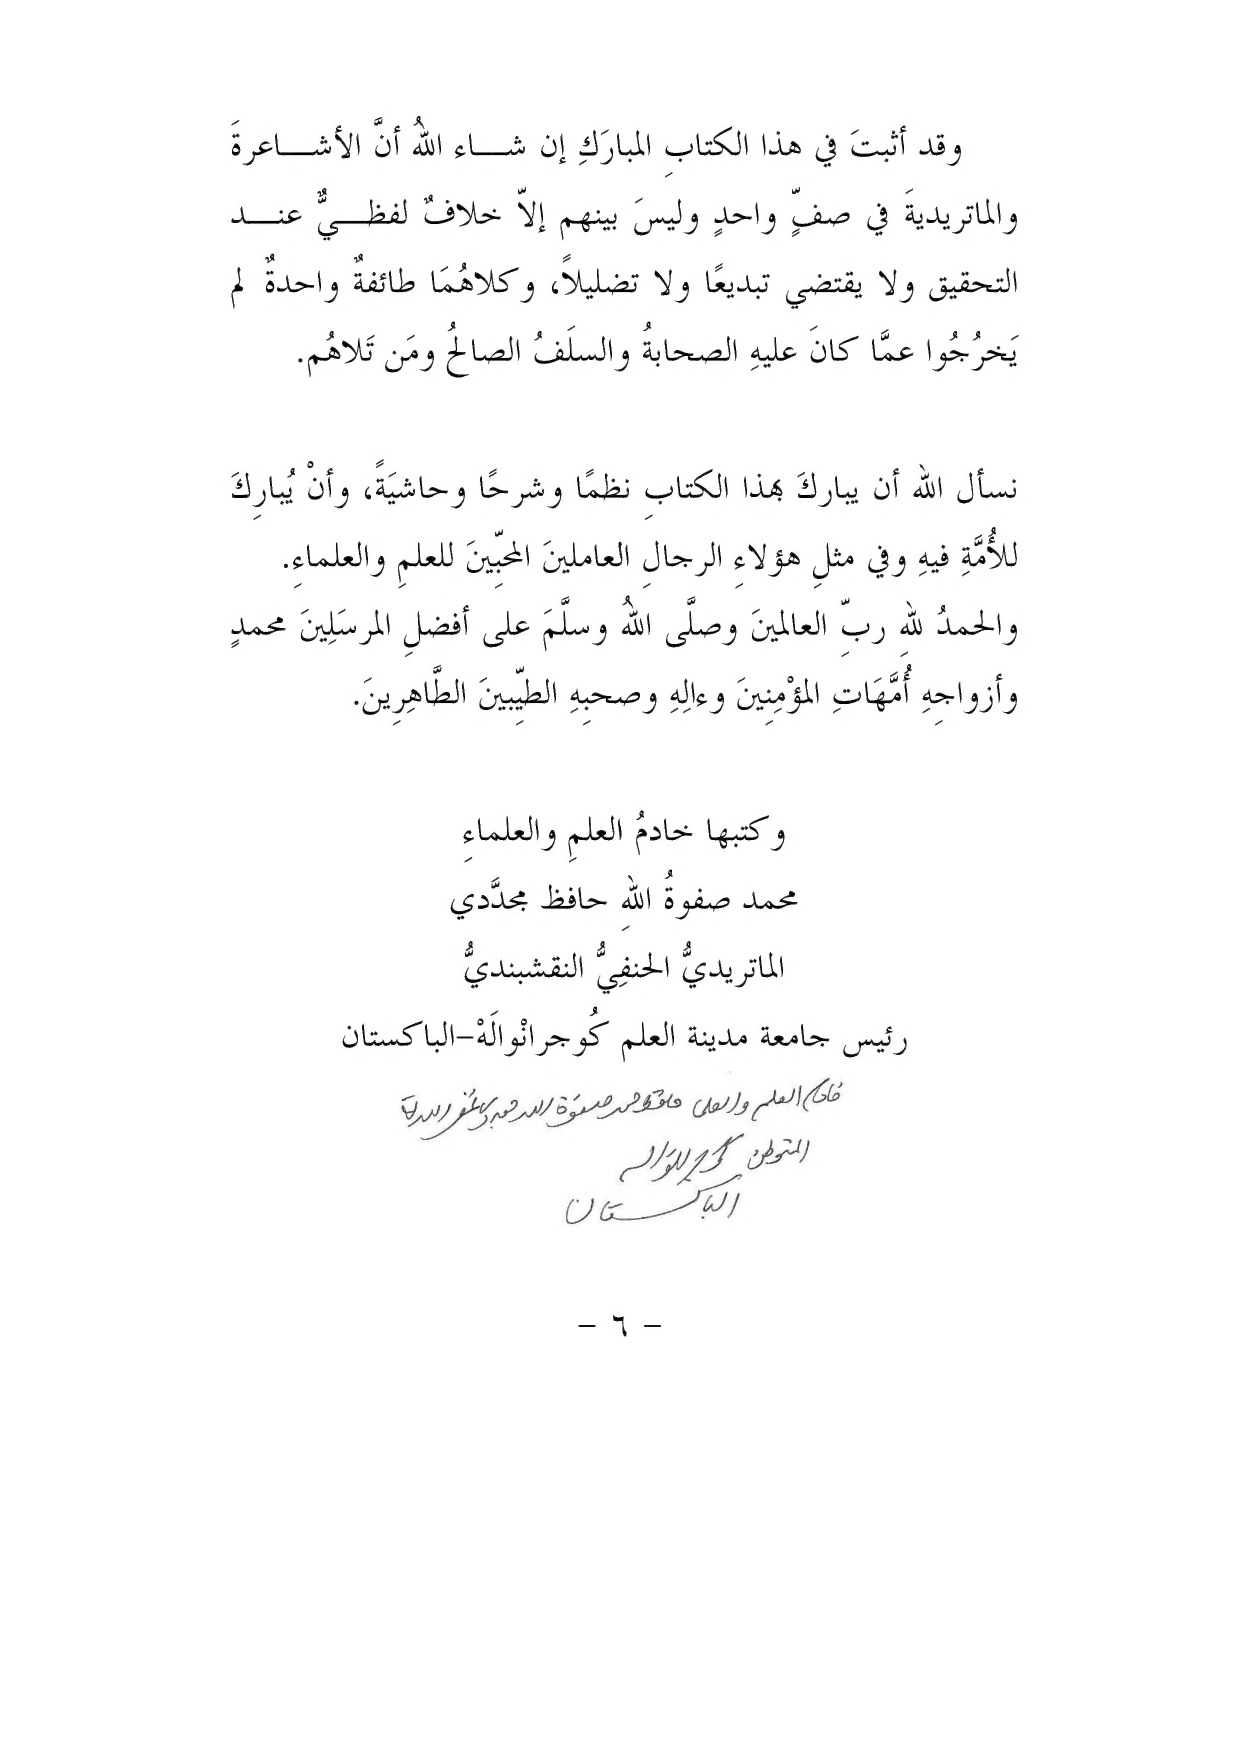 وقد أثبتَ في هذا الكتابِ المبارَكِ إن شاء اللهُ أنَّ الأشاعرةَ
والماتريديةَ في صفٍّ واحدٍ وليسَ بينهم إلاّ خلافٌ لفظيٌّ عند
التحقيق ولا يقتضي تبديعًا ولا تضليلاً، وكلاهُمَا طائفةٌ واحدةٌ لم
يَخرُجُوا عمَّا كانَ عليهِ الصحابةُ والسلَفُ الصالحُ ومَن تَلاهُم.
نسأل الله أن يباركَ بهذا الكتابِ نظمًا وشرحًا وحاشيَةً، وأنْ يُبارِكَ
للأُمَّةِ فيهِ وفي مثلِ هؤلاءِ الرجالِ العاملينَ المحبِّينَ للعلمِ والعلماءِ.
والحمدُ للهِ ربِّ العالمينَ وصلَّى اللهُ وسلَّمَ على أفضلِ المرسَلِينَ محمدٍ
وأزواجِهِ أُمَّهَاتِ المؤْمِنِينَ وءالِهِ وصحبِهِ الطيِّبينَ الطَّاهِرِينَ.
وكتبها خادمُ العلمِ والعلماءِ
محمد صفوةُ اللهِ حافظ مجدَّدي
الماتريديُّ الحنفِيُّ النقشبنديُّ
رئيس جامعة مدينة العلم كُوجرانْوالَهْ–الباكستان
خادم العلم والعلماء
المتوطن
الباكستان
– ٦ –